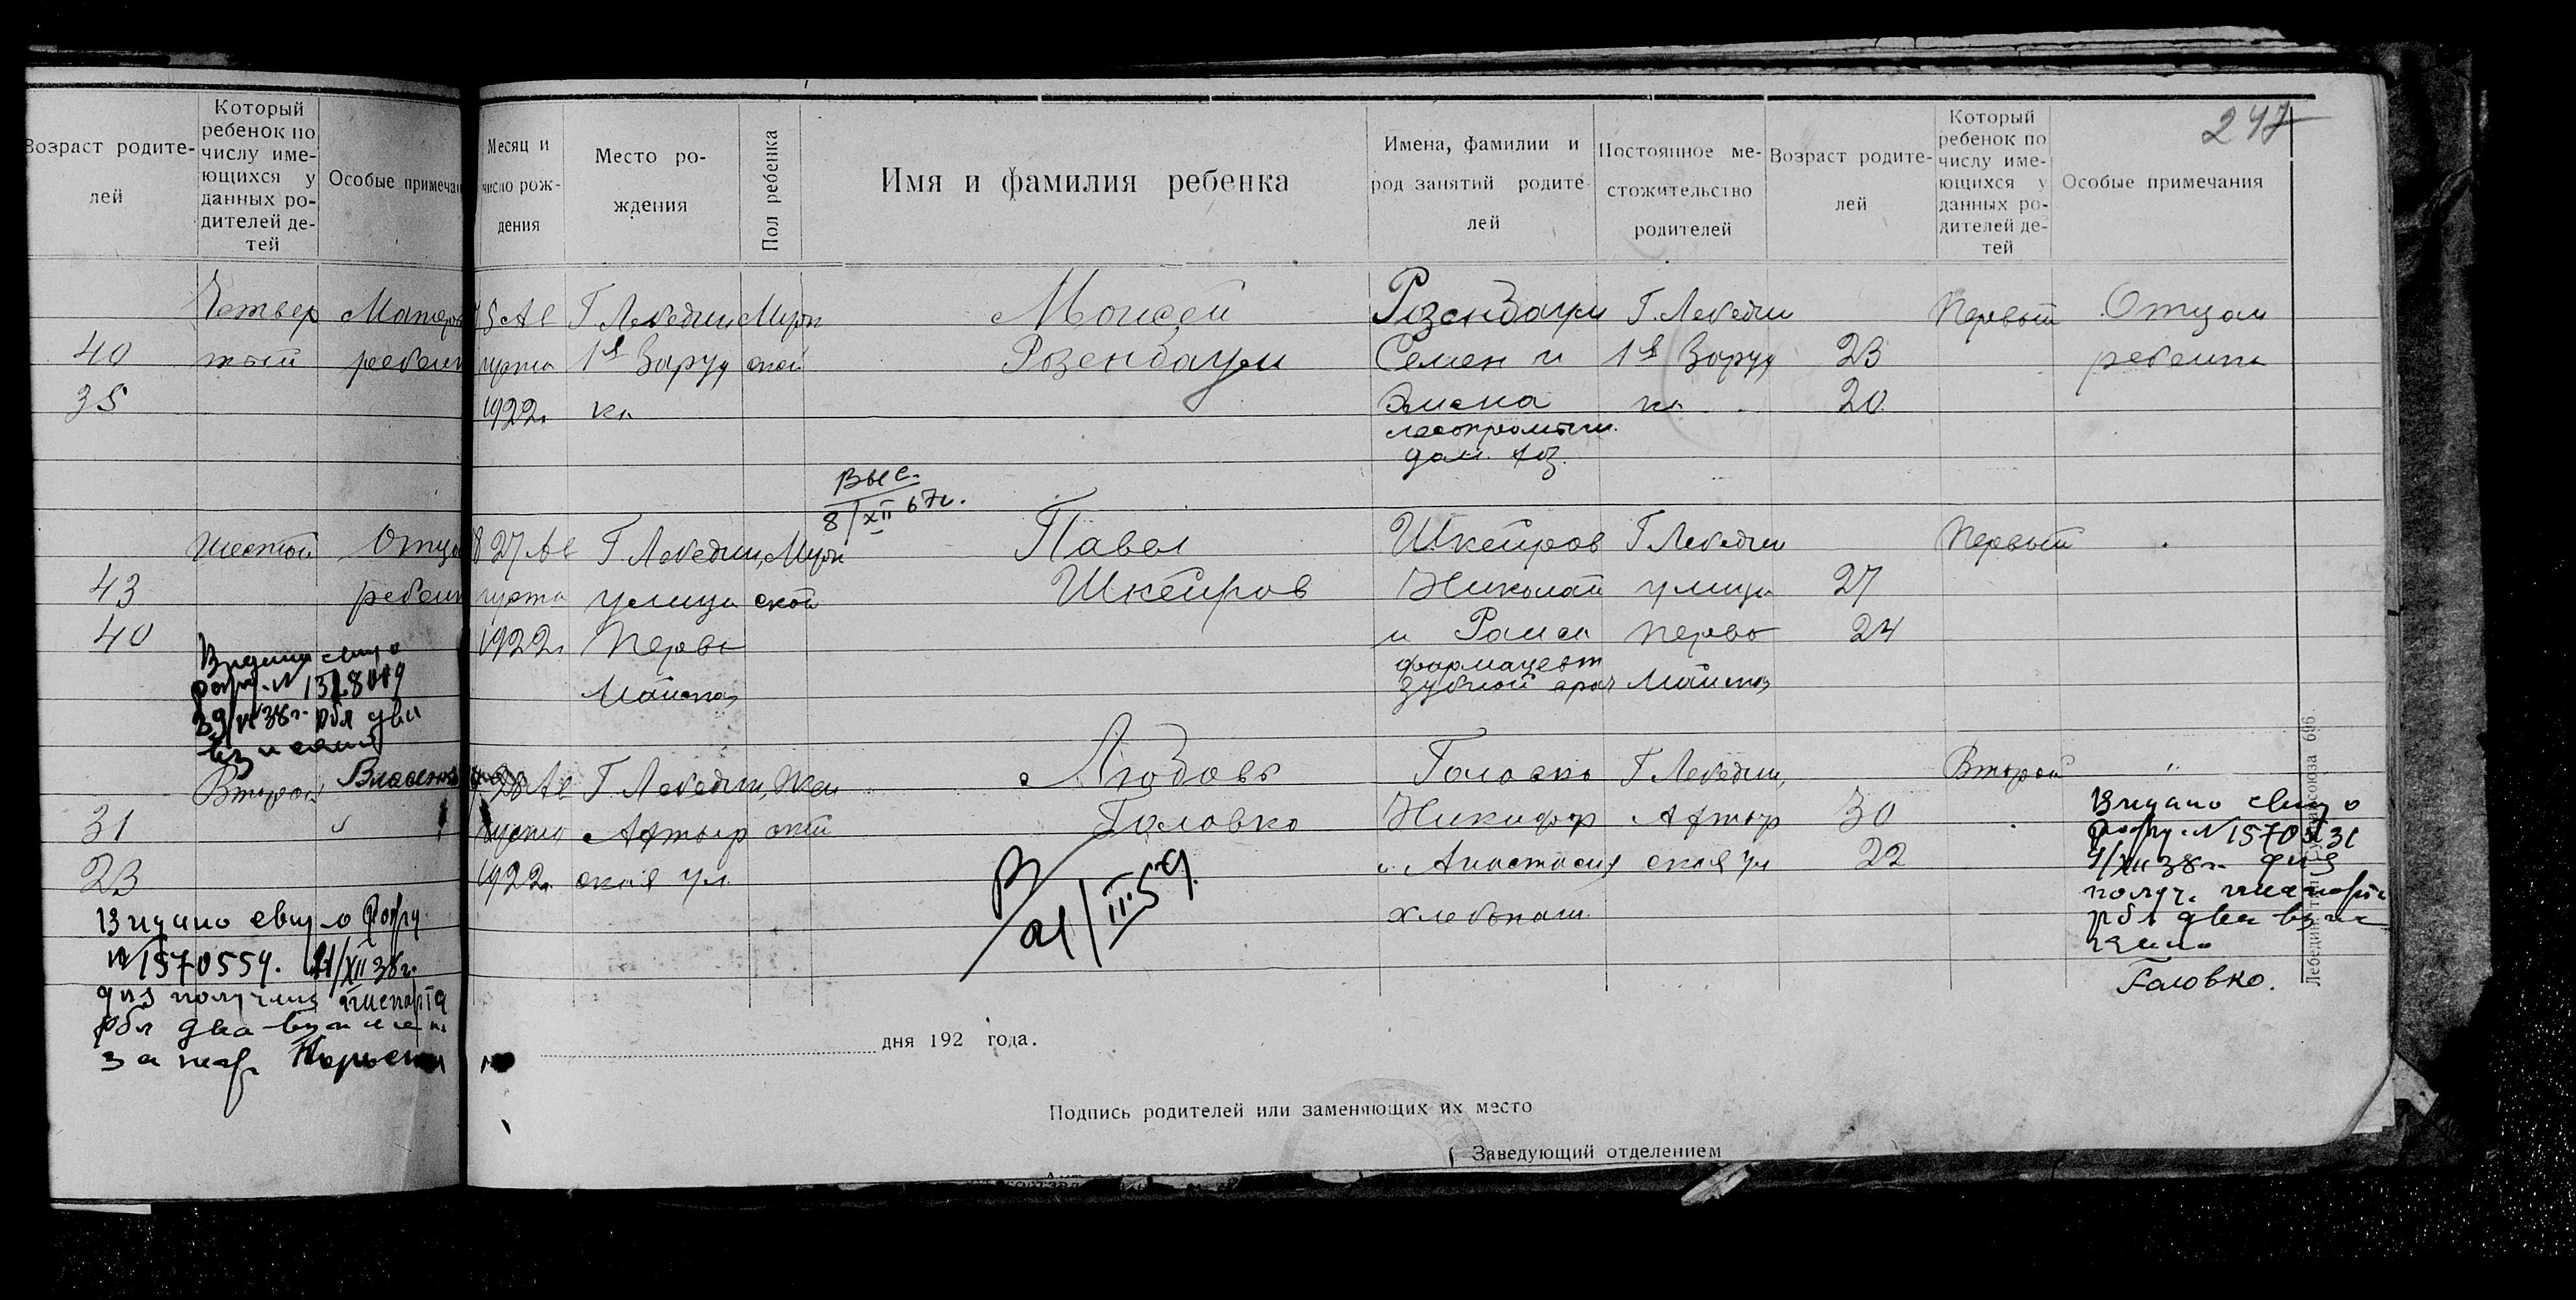 Возраст родите-
лей
Который
ребенок по
числу име-
ющихся у
данных ро-
дителей де-
тей
Особые примечан
Четвер
тый
Матерью
ребенк
40
35
Шестой
Отцом
ребенк
43
40
Второй
31
23
Выдано свид о
рожд. №
Выдано свид о рожд.
№ 1570554. 21/XII 38г.
для получения паспорта
рбл два взыскано
247
Месяц и
число рож-
дения
Место ро-
ждения
Пол ребенка
Имя и фамилия ребенка
Имена, фамилии и
род занятий родите-
лей
Постоянное ме-
стожительство
родителей
Возраст родите-
лей
Который
ребенок по
числу име-
ющихся у
данных ро-
дителей де-
тей
Особые примечания
5 Ав
густа
1922г.
Г Лебедин
1я Заруд
ка
Муж
ской
Моисей
Розенбаум
Розенбаум
Семен и
леспромышл.
дом. хоз.
Г. Лебедин
1я Заруд
ка
23
20
Первый
Отцом
ребенка
Выс.
8/XII 67г.
27 Ав
густа
1922г
Г Лебедин,
улица
Перво
Майская
Муж
ской
Павел
Шкейров
Шкейров
Николай
и Раиса
фармацевт
зубной врач
Г Лебедин
улица
Перво
Майская
27
24
Первый
28 Ав
густа
1922г.
Г. Лебедин,
Ахтыр
ская ул.
Жен
ский
Любовь
Головко
В
21/II.59.
Головко
Никифор
и Анастасия
хлебопаш.
Г Лебедин,
Ахтыр
ская ул
30
22
Второй
"
Выдано свид о
рожд. №
9/XII 38г. для
получ. паспорта
рбл два взыс
кано
Головко.
дня 192 года.
Подпись родителей или заменяющих их место
Заведующий отделением